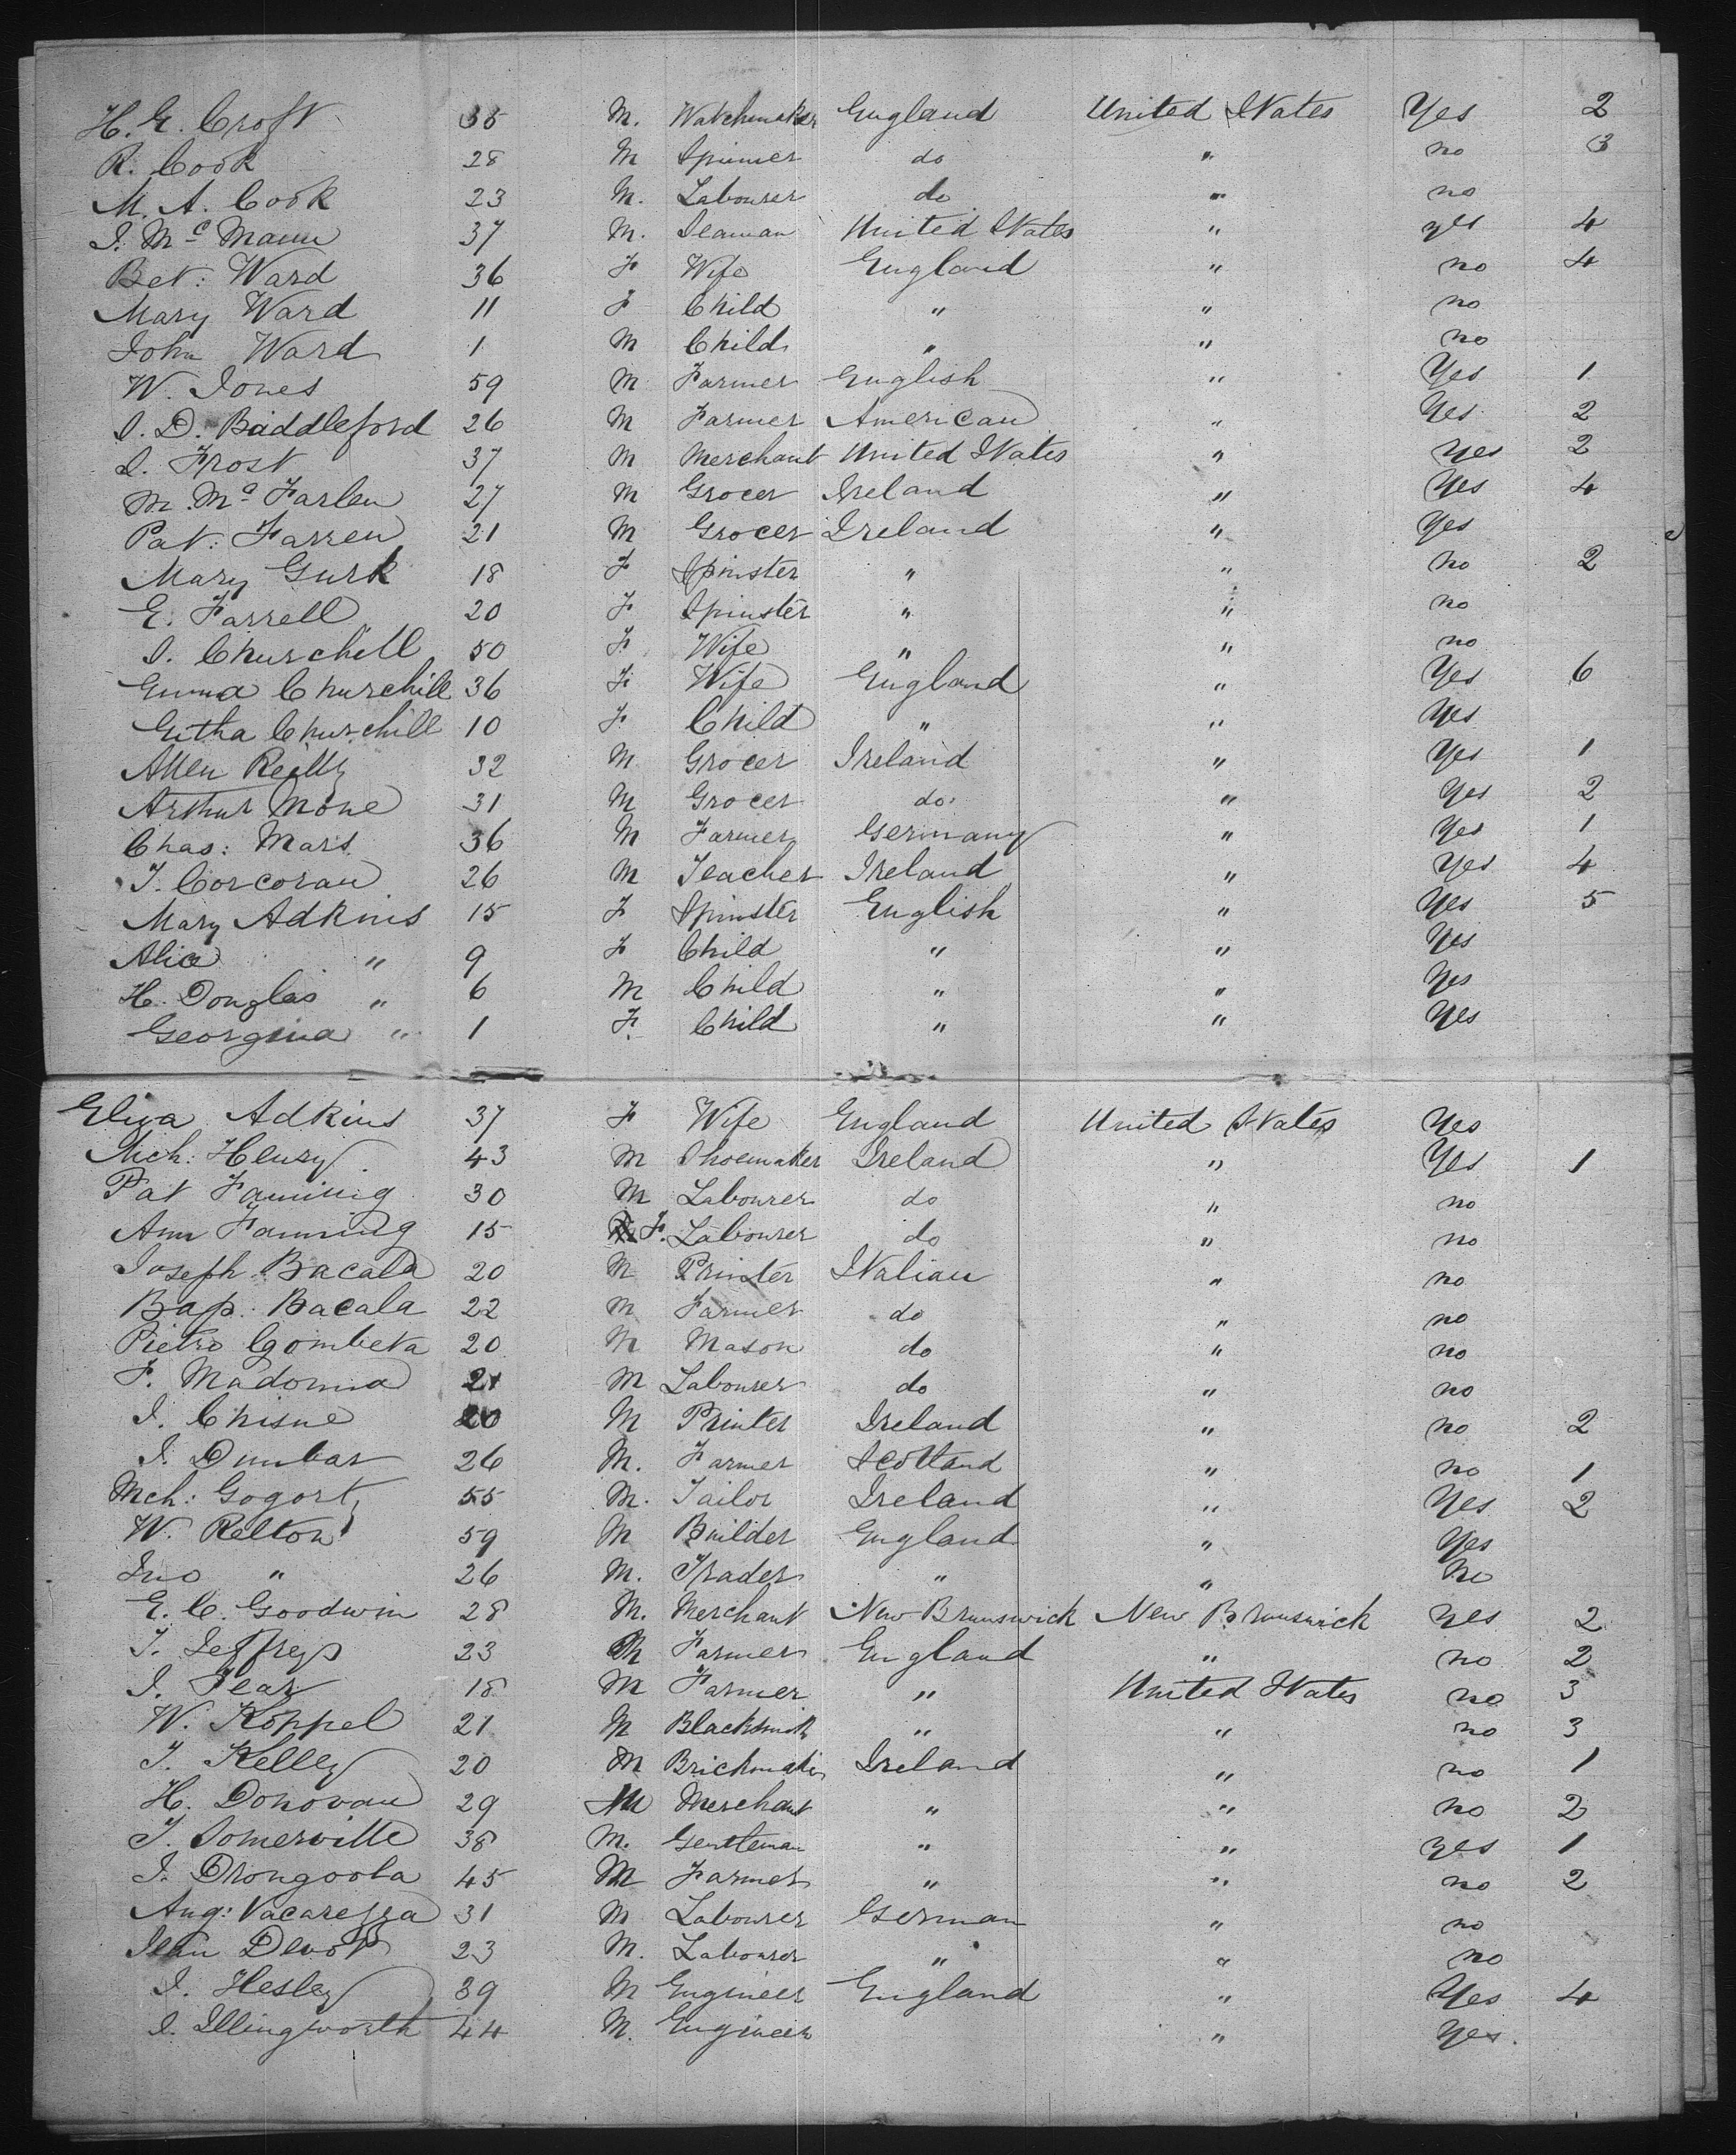 H. E. Croft 35 M. Watchmaker England United States Yes 2
R. Cook 28 M Spinner do " no 3
M. A. Cook 23 M. Labourer do " no
J. Mc Mann 37 M. Seaman United States " yes 4
Bet: Ward 36 F Wife England " no 4
Mary Ward 11 F Child " " no
John Ward 1 M Child " " no
W. Jones 59 M Farmer English " Yes 1
J. D. Baddleford 26 M Farmer American " Yes 2
J. Frost 37 M Merchant United States " yes 2
M. Mc Farlen 27 M Grocer Ireland " Yes 4
Pat: Farren 21 M Grocer Ireland " Yes
Mary Gurk 18 F Spinster " " no 2
E. Farrell 20 F Spinster " " no
S. Churchill 50 F Wife " " no
Emma Churchill 36 F Wife England " Yes 6
Getha Churchill 10 F Child " " Yes
Allen Reilly 32 M Grocer Ireland " Yes 1
Arthur Mone 31 M Grocer do " Yes 2
Chas: Mars 36 M Farmer Germany " Yes 1
T. Corcoran 26 M Teacher Ireland " Yes 4
Mary Adkins 15 F Spinster English " Yes 5
Alice " 9 F Child " " Yes
H. Douglas " 6 M Child " " Yes
Georgina " 1 F. Child " " Yes
Eliza Adkins 37 F Wife England United States Yes
Mich: Henry 43 M Shoemaker Ireland " Yes 1
Pat Fanning 30 M Labourer do " no
Ann Fanning 15 F. Labourer do " no
Joseph Bacala 20 M Printer Italian " no
Bap: Bacala 22 M Farmer do " no
Pietro Cgombeta 20 M Mason do " no
F. Madonna 21 M Labourer do " no
J. Chisne 20 M Printer Ireland " no 2
J. Dunbar 26 M. Farmer Scotland " no 1
Mch: Gogorty 55 M. Tailor Ireland " Yes 2
W. Relton 59 M Builder England " Yes
Jno " 26 M. Trader " " No
E. C. Goodwin 28 M. Merchant New Brunswick New Brunswick Yes 2
T. Jeffreys 23 M Farmer England " no 2
J. Fear 18 M Farmer " United States no 3
W. Koppel 21 M Blacksmith " " no 3
T. Kelley 20 M Brickmaker Ireland " no 1
H. Donovan 29 M Merchant " " no 2
T. Somerville 38 M. Gentleman " " yes 1
J. Drongoola 45 M Farmer " " no 2
Aug: Vacarezza 31 M Labourer German " no
Jean Devot 23 M. Labourer " " no
J. Hesley 39 M Engineer England " Yes 4
J. Illingworth 44 M. Engineer " Yes.